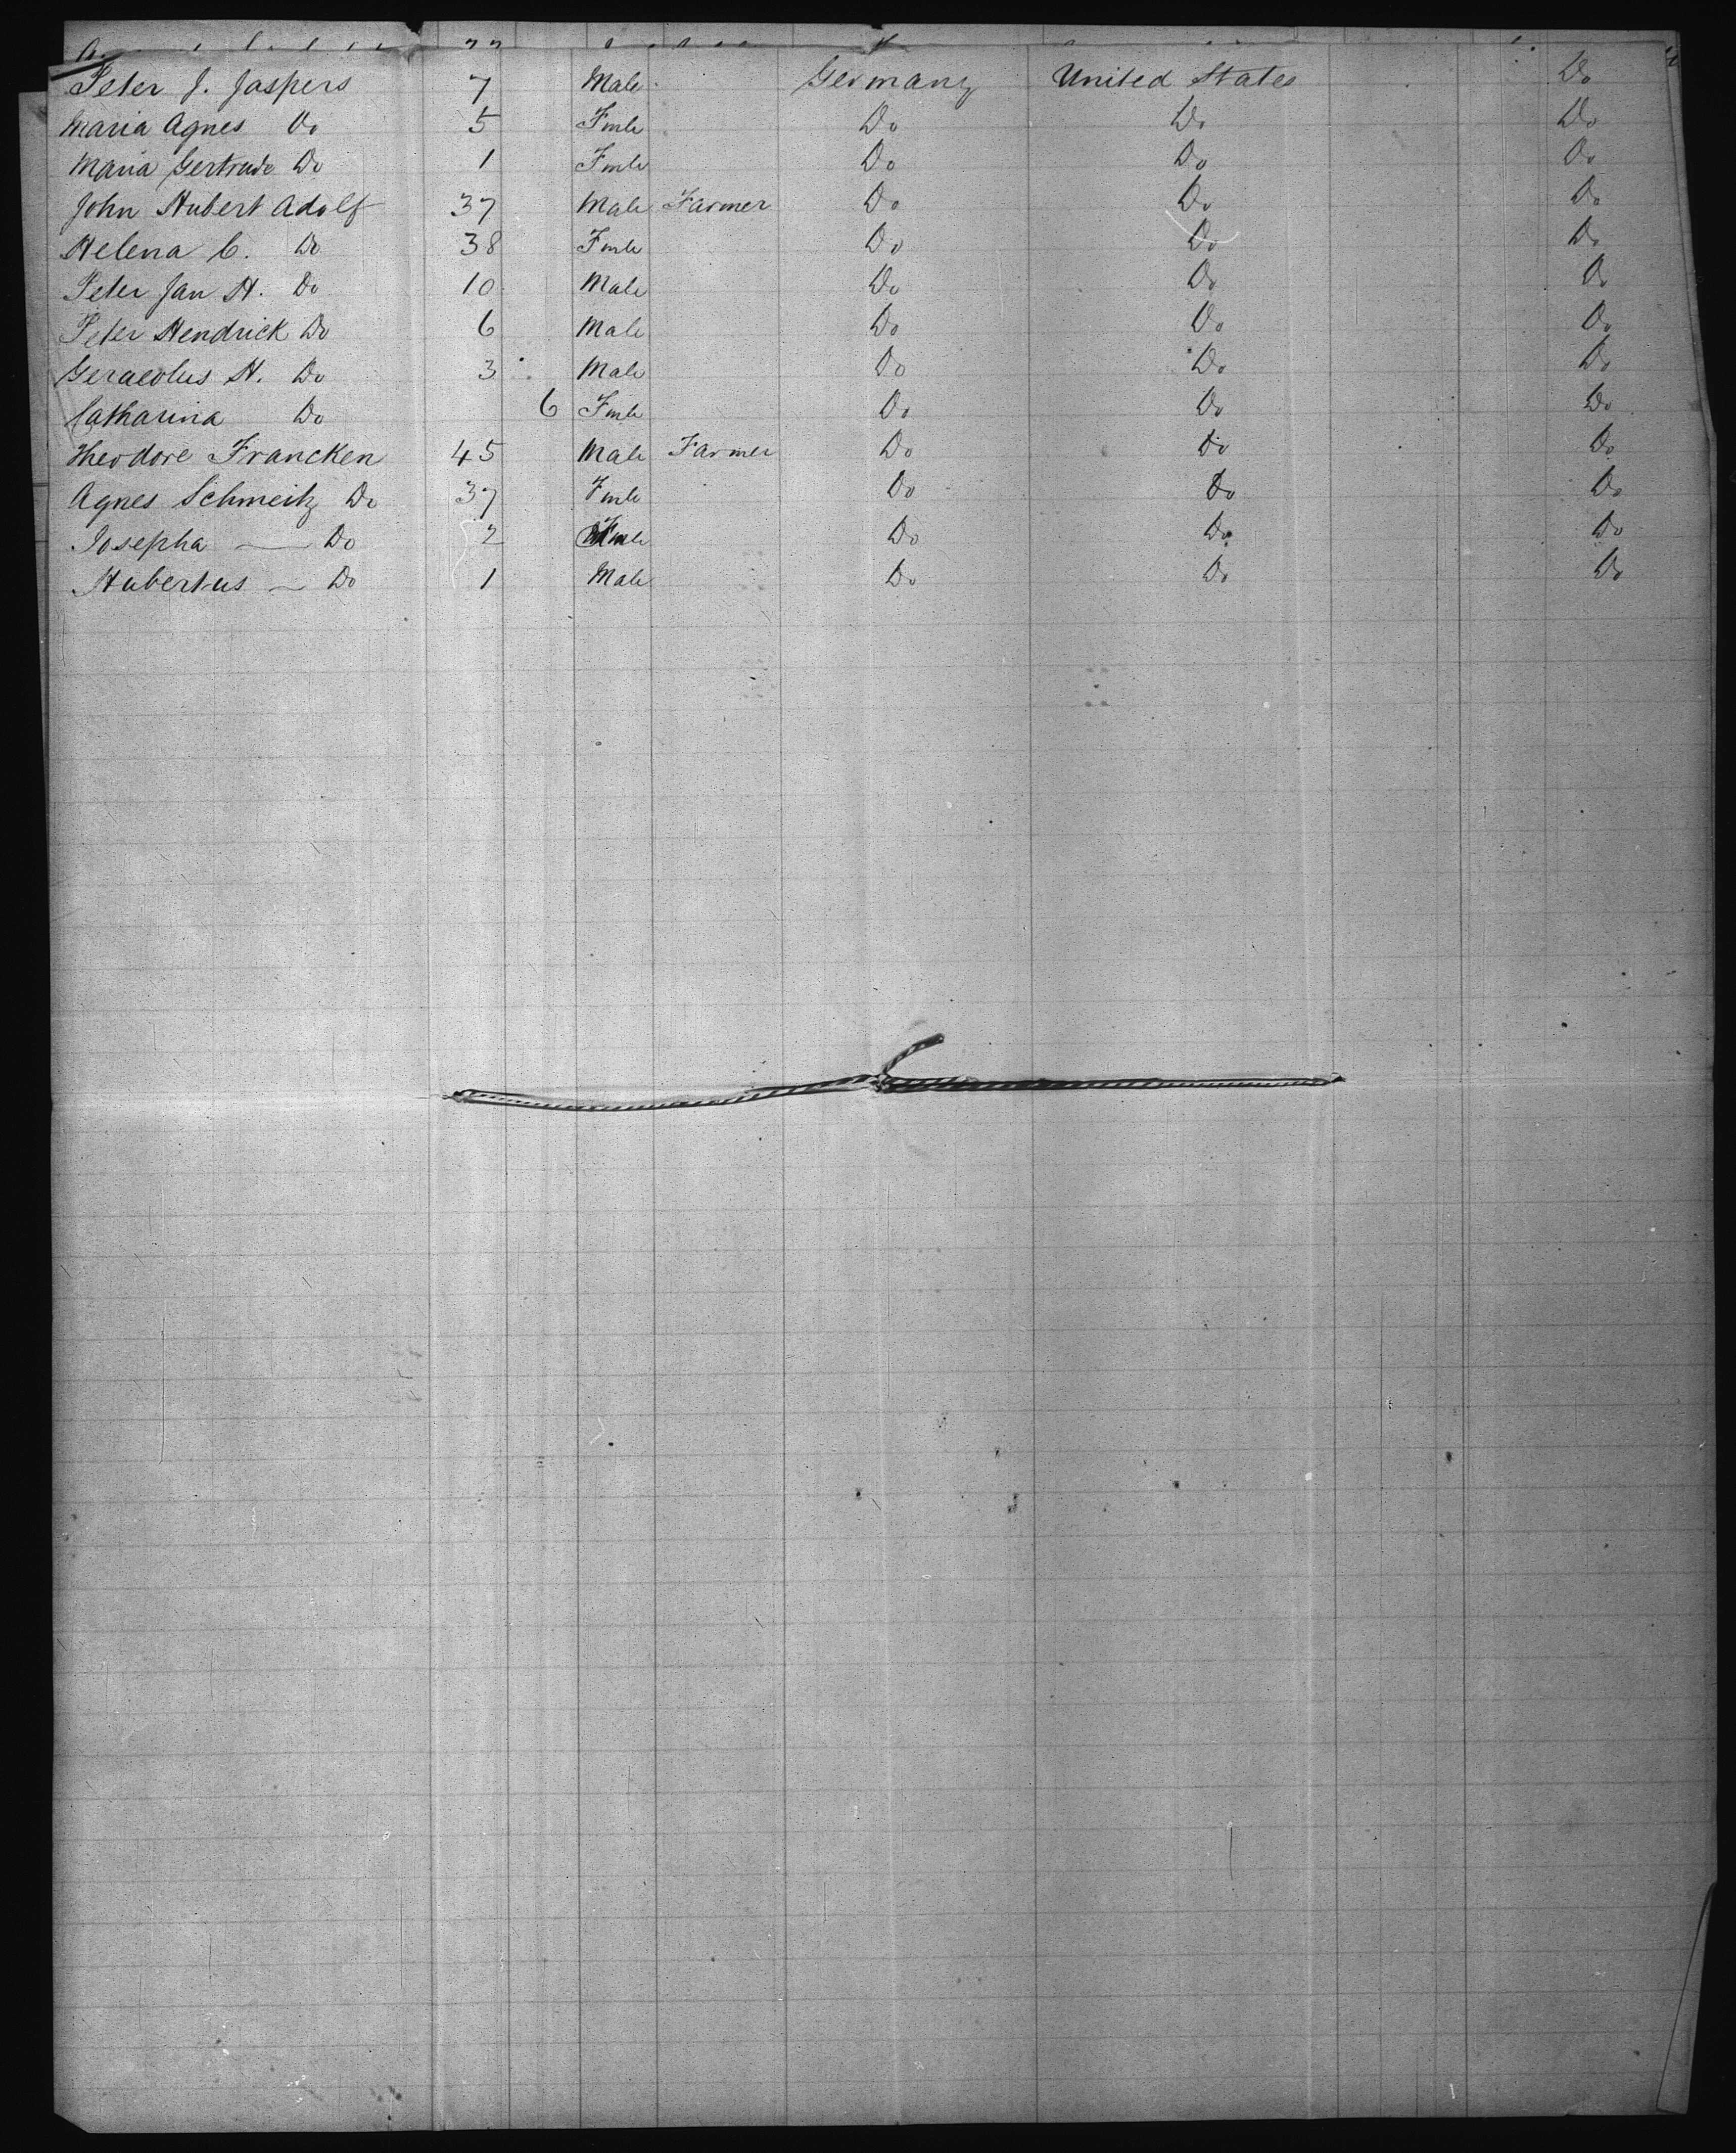 Peter J. Jaspers 7 Male Germany United States Do
Maria Agnes Do 5 Fmle Do Do Do
Maria Gertrude Do 1 Fmle Do Do Do
John Hubert Adolf 37 Male Farmer Do Do Do
Helena C. Do 38 Fmle Do Do Do
Peter Jan H. Do 10 Male Do Do Do
Peter Hendrick Do 6 Male Do Do Do
H. Do 3 Male Do Do Do
Catharina Do 6 Fmle Do Do Do
Theodore Francken 45 Male Farmer Do Do Do
Agnes Schmeitz Do 37 Fmle Do Do Do
Josepha — Do 2 Fmle Do Do Do
Hubertus — Do 1 Male Do Do Do